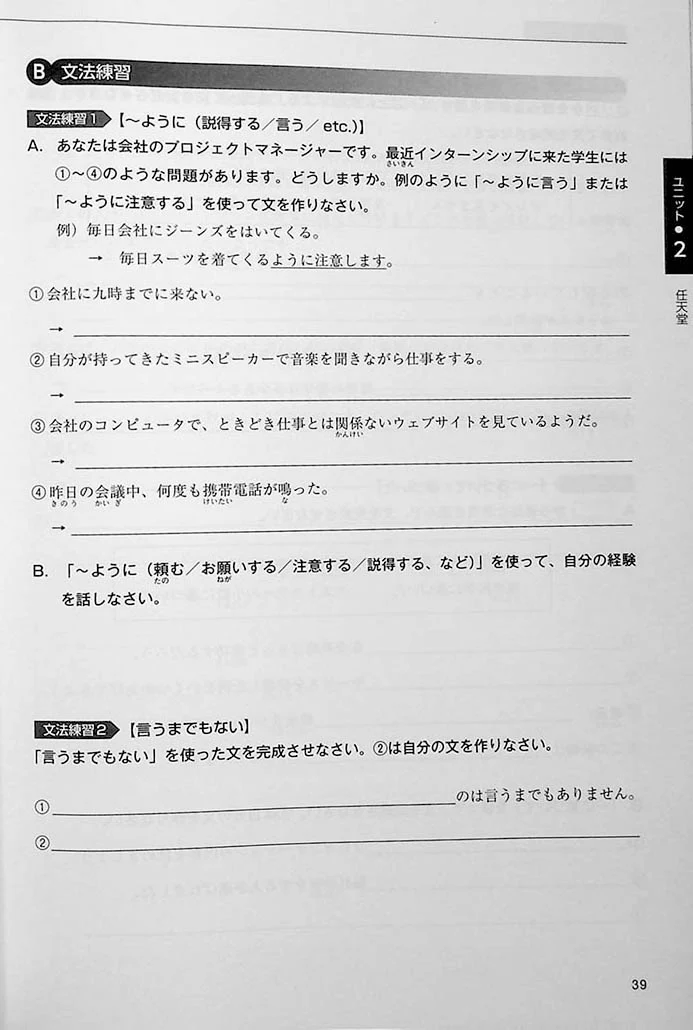 B 文法練習
文法練習1 【～ように（説得する／言う／ etc.）】
A. あなたは会社のプロジェクトマネージャーです。最近インターンシップに来た学生には
さいきん
①～④のような問題があります。どうしますか。例のように「～ように言う」または
「～ように注意する」を使って文を作りなさい。
例）毎日会社にジーンズをはいてくる。
→ 毎日スーツを着てくるように注意します。
①会社に九時までに来ない。
→
②自分が持ってきたミニスピーカーで音楽を聞きながら仕事をする。
→
③会社のコンピュータで、ときどき仕事とは関係ないウェブサイトを見ているようだ。
かんけい
→
④昨日の会議中、何度も携帯電話が鳴った。
きのう かいぎ けいたい な
→
B. 「～ように（頼む／お願いする／注意する／説得する、など）」を使って、自分の経験
たの ねが
を話しなさい。
文法練習2 【言うまでもない】
「言うまでもない」を使った文を完成させなさい。②は自分の文を作りなさい。
① のは言うまでもありません。
②
ユニット●2
任天堂
39